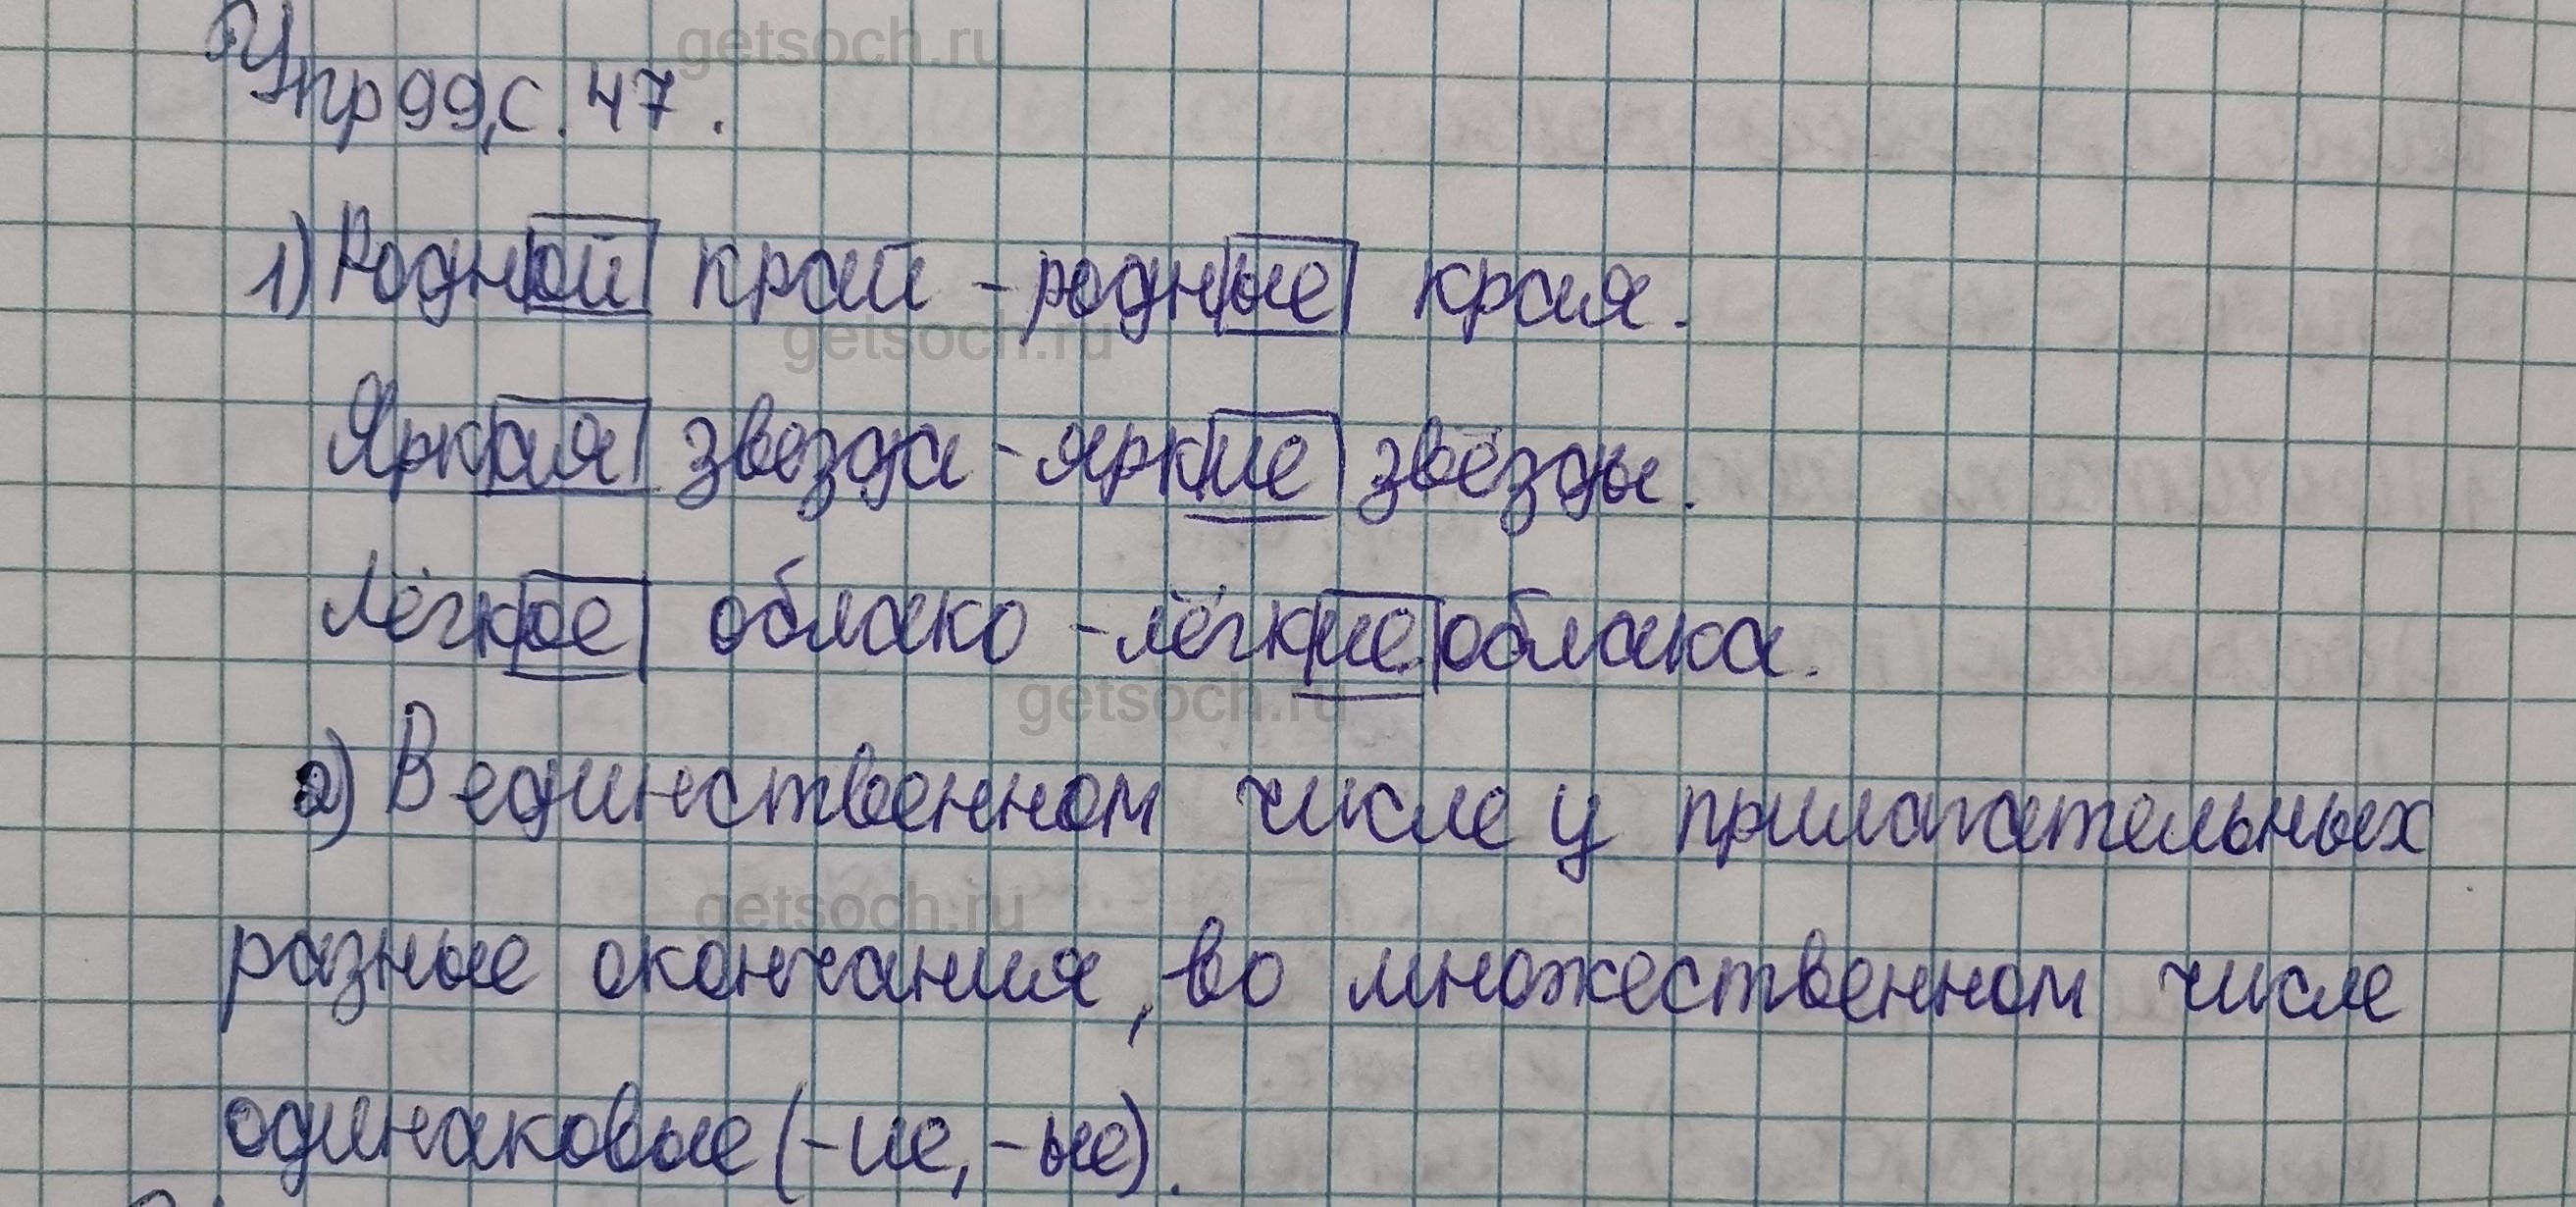 getsoch.ru
Упр 99, с. 47.
1) Родной край - родные края.
getsoch.ru
Яркая звезда - яркие звёзды.
Лёгкое облако - лёгкие облака.
getsoch.ru
2) В единственном числе у прилагательных
getsoch.ru
разные окончания, во множественном числе
одинаковые (-ие, -ые).